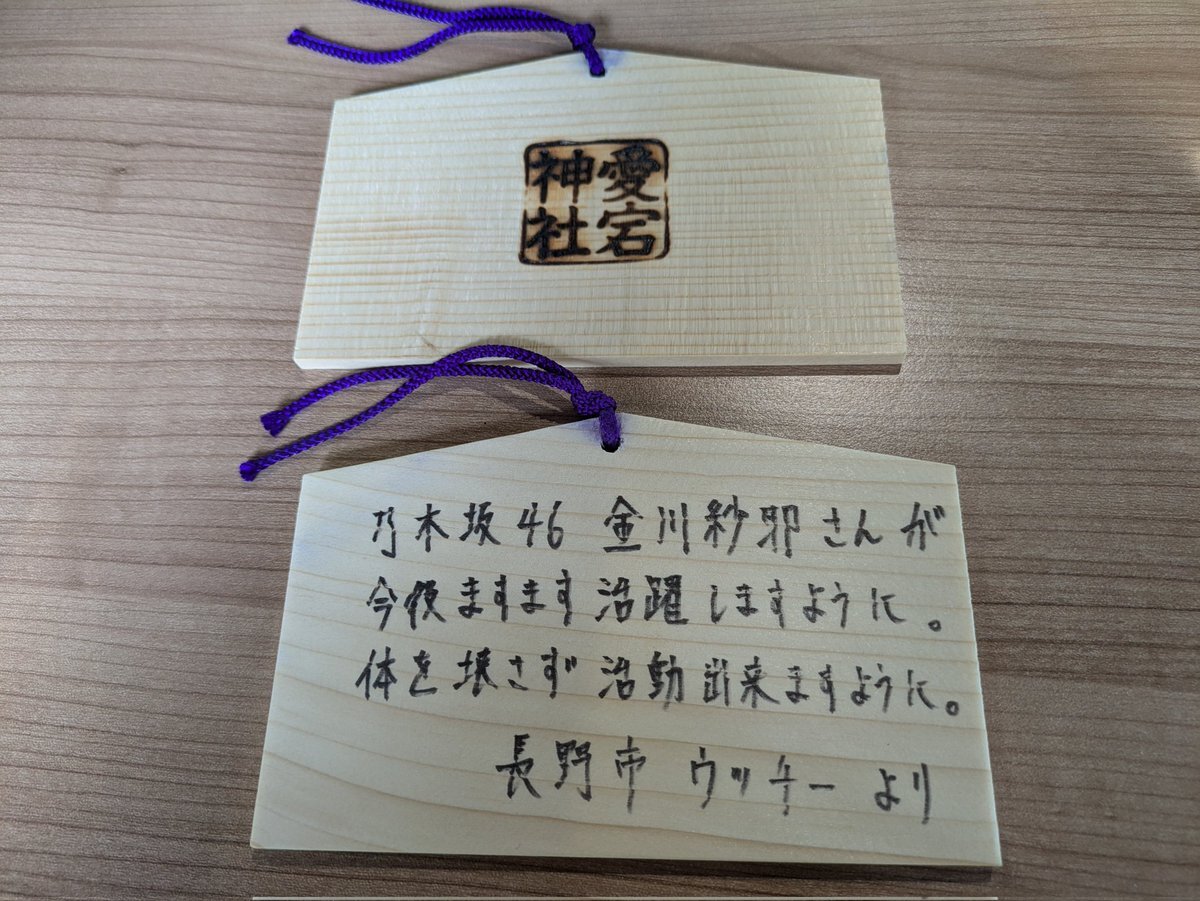 愛宕
神社
乃木坂46 金川紗耶さんが
今後ますます活躍しますように。
体を壊さず活動出来ますように。
長野市 ウッキーより